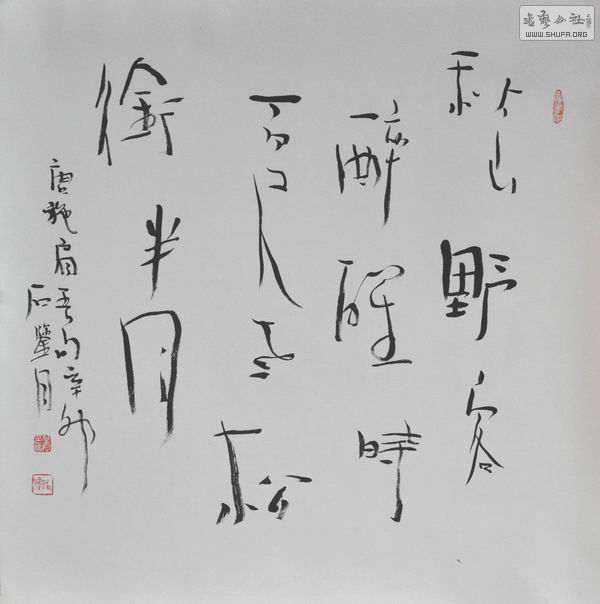 書藝公社
WWW.SHUFA.ORG
秋山野客
醉醒時
百尺老松
銜半月
唐施肩吾句辛卯
石 月